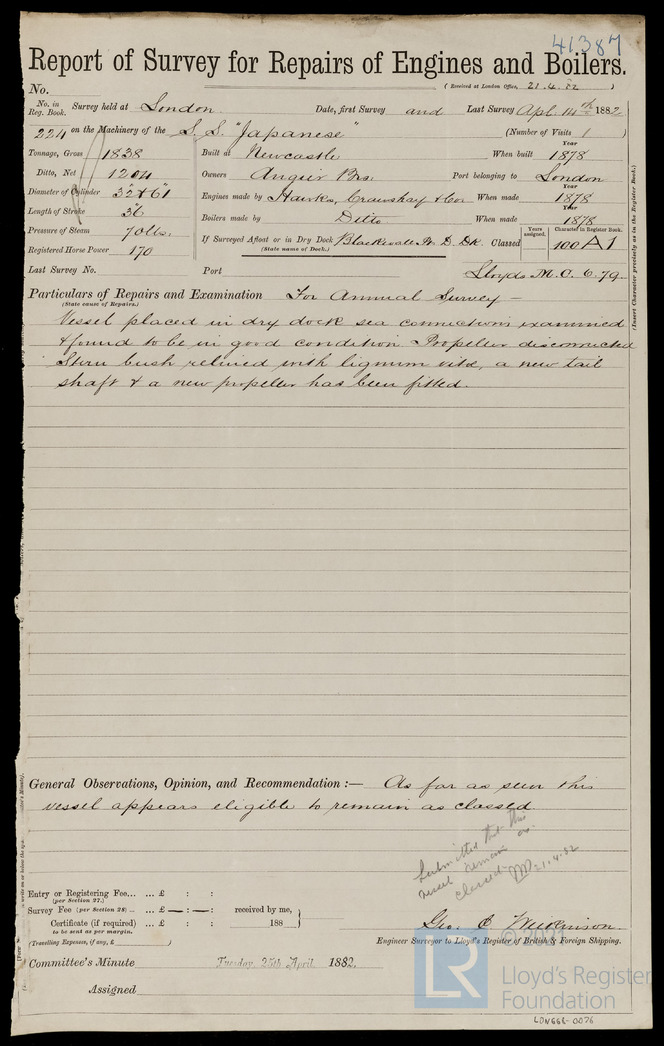 41387
Report of Survey for Repairs of Engines and Boilers.
(Received at London Office, 21.4.82 )
No.
No. in Reg. Book. Survey held at London Date, first Survey and Last Survey Apl. 14th 1882
224 on the Machinery of the S.S. "Japanese" (Number of Visits 1 )
Tonnage, Gross 1838 Built at Newcastle When built Year 1878
Ditto, Net 1204 Owners Angier Bros. Port belonging to London
Diameter of Cylinder 32" & 61" Engines made by Hawks, Crawshay & Co. When made Year 1878
Length of Stroke 36" Boilers made by Ditto When made Year 1878
Pressure of Steam 70 lbs. If Surveyed Afloat or in Dry Dock Blackwall D. Dk. Classed Years assigned. Character in Register Book. 100 A1
(State name of Dock.)
Registered Horse Power 170
Last Survey No. Port Lloyds M.C. 6.79.
(Insert Character precisely as in the Register Book.)
Particulars of Repairs and Examination For Annual Survey —
(State cause of Repairs.)
Vessel placed in dry dock sea connections examined
& found to be in good condition. Propeller disconnected
Stern bush relined with lignum vitæ, a new tail
shaft & a new propeller has been fitted.
General Observations, Opinion, and Recommendation :— As far as seen this
vessel appears eligible to remain as classed
Submitted that this
vessel remain as
classed 21.4.82
Entry or Registering Fee... ... £ : :
(per Section 27.)
Survey Fee (per Section 28) ... ... £ — : — : received by me,
Certificate (if required) ... £ : : 188
to be sent as per margin.
(Travelling Expenses, if any, £ )
Geo. C. Wilkinson
Engineer Surveyor to Lloyd's Register of British & Foreign Shipping.
Committee's Minute Tuesday 25th April 1882.
Assigned
© 2021
LR
Lloyd's Register
Foundation
LON668-0076